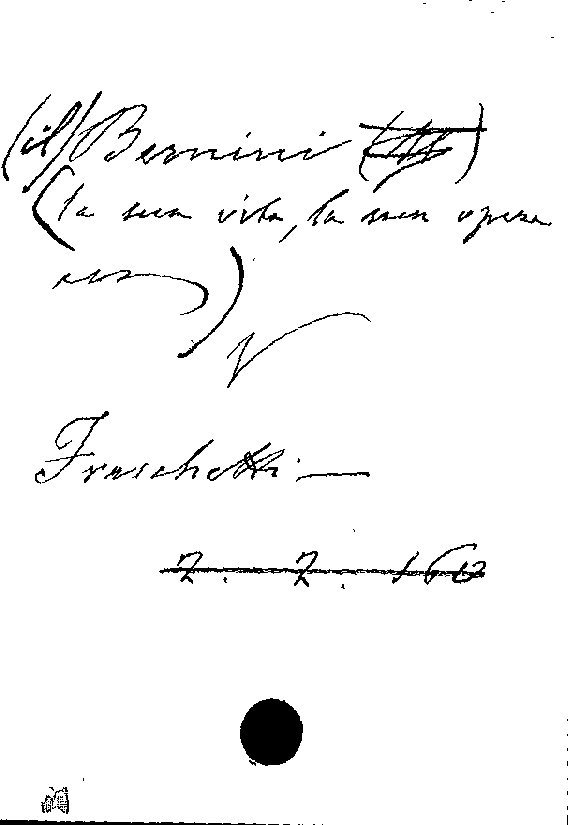 (il) Bernini
(la sua vita, la sua opera
ecc)
V
Fraschetti —
Z. Z. 160